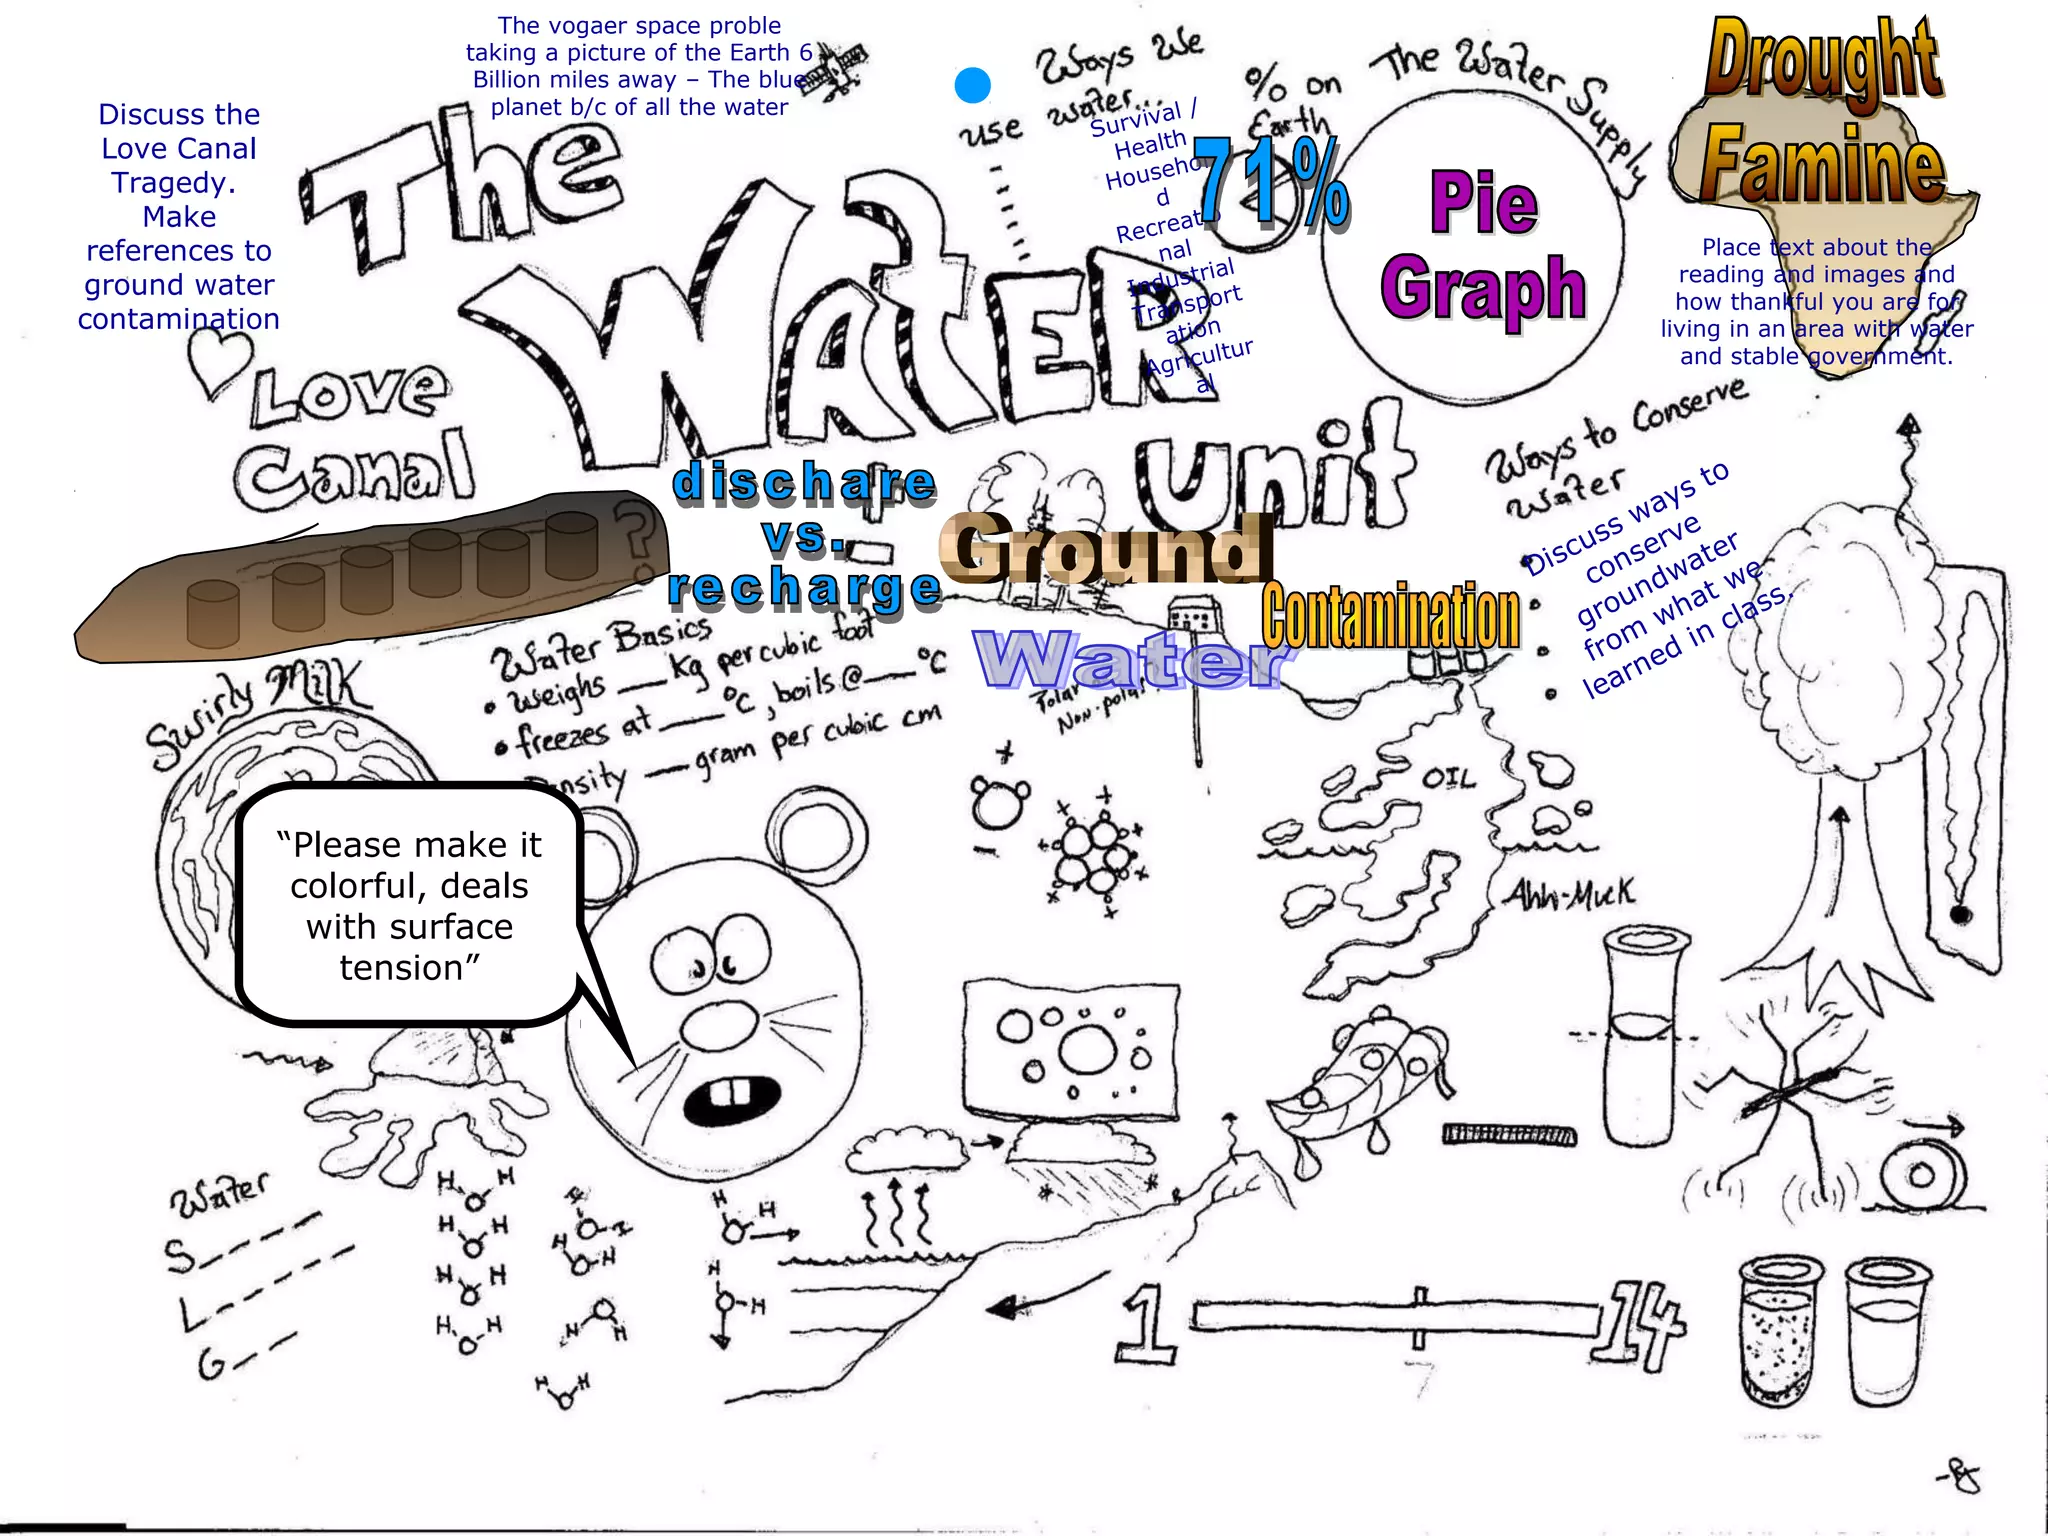 The vogaer space proble
taking a picture of the Earth 6
Billion miles away – The blue
planet b/c of all the water
Discuss the
Love Canal
Tragedy.
Make
references to
ground water
contamination
The
Water
Unit
Ways We
use water...
Survival /
Health
Househol
d
Recreatio
nal
Industrial
Transport
ation
Agricultur
al
% on
Earth
71%
The Water Supply
Pie
Graph
Drought
Famine
Place text about the
reading and images and
how thankful you are for
living in an area with water
and stable government.
Love
Canal
?
dischare
vs.
recharge
Ground
Water
Contamination
Ways to Conserve
Water
Discuss ways to
conserve
groundwater
from what we
learned in class.
Swirly Milk
Water Basics
• weighs __ kg per cubic foot
• freezes at ___ °C, boils @ ___ °C
Density __ gram per cubic cm
Polar
Non-polar
+
-
OIL
Ahh-Muck
“Please make it
colorful, deals
with surface
tension”
Water
S_ _ _ _ _
L_ _ _ _ _
G_ _ _
H H
H H
H H
H H
H H
H H
H H
H H
H
H
1
14
7